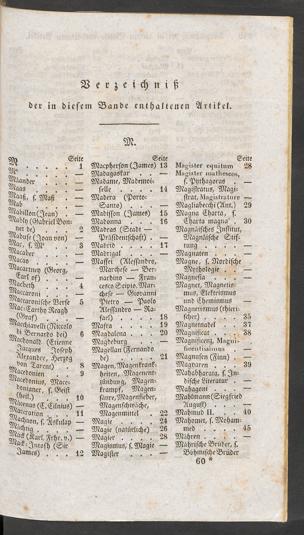 Verzeichniß
der in diesem Bande enthaltenen Artikel.
M.
Seite
M . . . 1
Maander
Maas
Maaß, s. Maß
Mab
Mabillon (Jean)
Mably (Gabriel Bonnot de) 2
Mabuse (Jean von)
Mac, s. M' 3
Macaber
Macao
Macartney (Georg, Earl of)
Macbeth 4
Maccaroni
Maccaronische Verse 5
Mac-Carthy Reagh (Graf)
Macchiavelli (Niccolo di Bernardo dei) 6
Macdonald (Etienne Jacques Joseph Alexander, Herzog von Tarent) 8
Macedonien 9
Macedonius, Macedonianer, s. Geist (heil.) 10
Macerata 11
Machaon, s. Äskulap
Mächtig
Mack (Karl, Frhr. v.)
Mack-Intosh (Sir James) 12
Seite
Macpherson (James) 13
Madagaskar
Madame, Mademoiselle 14
Madera (Porto-Santo)
Madison (James) 15
Madonna 16
Madras (Stadt — Präsidentschaft)
Madrid 17
Madrigal
Maffei (Alessandro, Marchese — Bernardino — Francesco Scipio, Marchese — Giovanni Pietro — Paolo Alessandro — Rafael) 18
Mafra 19
Magdalena 20
Magdeburg
Magellan (Fernando de) 21
Magen, Magenkrankheiten, Magenentzündung, Magenkrampf, Magensäure, Magenfieber, Magenschwäche, Magenmittel 22
Magie 24
Magie (natürliche) 26
Magier 28
Magismus, s. Magie
Magister
Seite
Magister equitum 28
Magister matheseos, s. Pythagoras
Magistratus, Magistrat, Magistrature
Magliabecchi (Ant.) 29
Magna Charta, s. Charta magna 30
Magnäisches Institut, Magnäische Stiftung
Magnaten
Magne, s. Nordische Mythologie
Magnesia
Magnet, Magnetismus, Elektrismus und Chemismus
Magnetismus (thierischer) 35
Magnetnadel 37
Magnificat 38
Magnificenz, Magnificentissimus
Magnusen (Finn)
Magyaren 39
Mahabharata, s. Indische Literatur
Mahagoni
Mahlmann (Siegfried August)
Mahmud II. 40
Mahomet, s. Mohammed 45
Mähren
Mährische Brüder, s. Böhmische Brüder
60 *